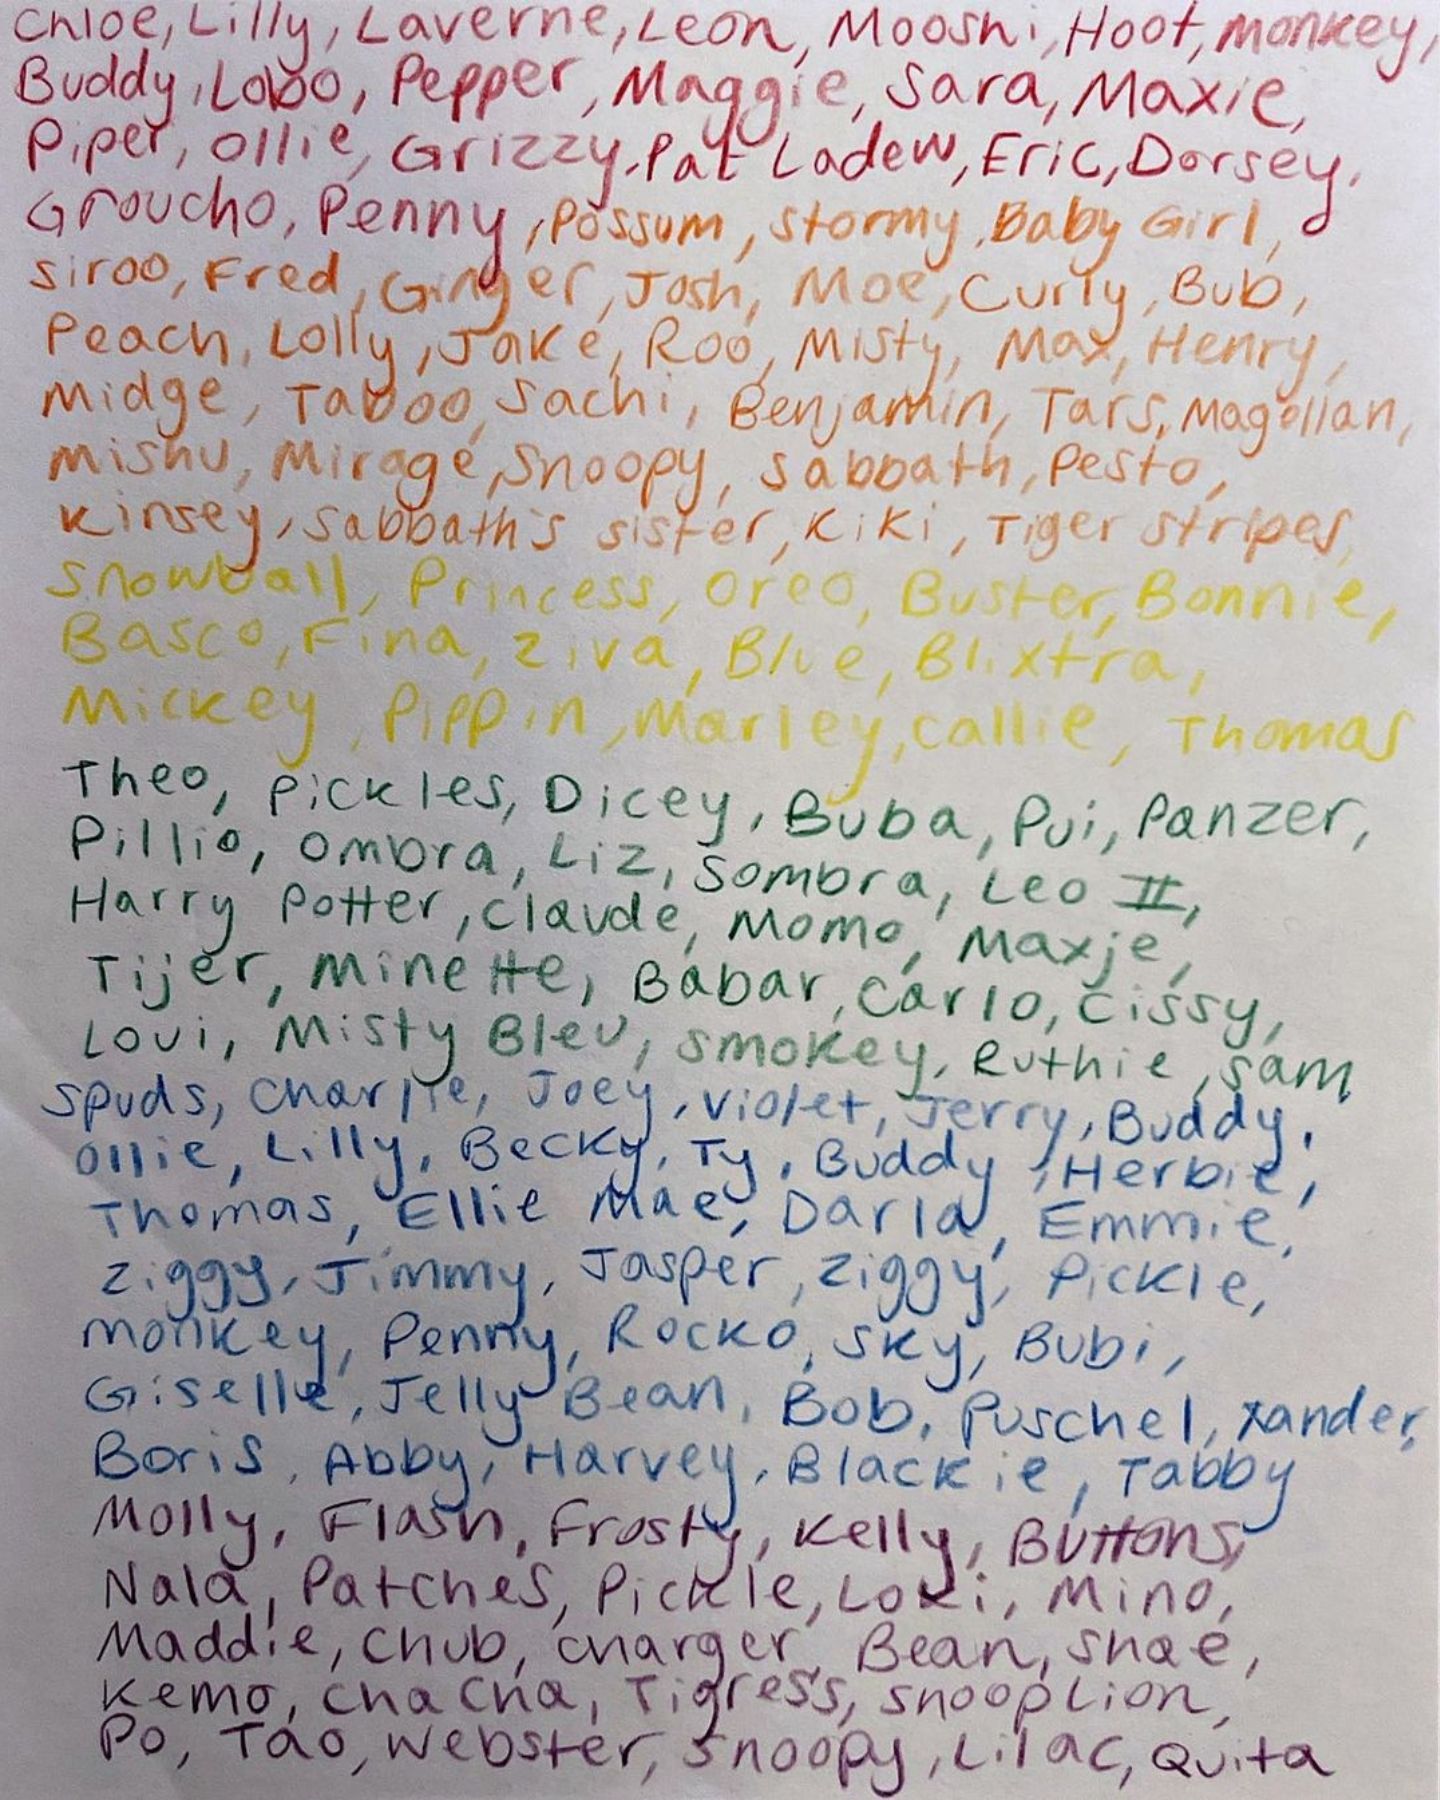 Chloe, Lilly, Laverne, Leon, Mooshi, Hoot, Monkey,
Buddy, Lobo, Pepper, Maggie, Sara, Maxie,
Piper, Ollie, Grizzy, Pat Ladew, Eric, Dorsey,
Groucho, Penny, Possum, Stormy, Baby Girl,
Siroo, Fred, Ginger, Josh, Moe, Curly, Bub,
Peach, Lolly, Jake, Roo, Misty, Max, Henry,
Midge, Taboo, Sachi, Benjamin, Tars, Magellan,
Mishu, Mirage, Snoopy, Sabbath, Pesto,
Kinsey, Sabbath's sister, Kiki, Tiger Stripes,
Snowball, Princess, Oreo, Buster, Bonnie,
Basco, Fina, Ziva, Blue, Blixtra,
Mickey, Pippin, Marley, Callie, Thomas
Theo, Pickles, Dicey, Buba, Pui, Panzer,
Pillio, Ombra, Liz, Sombra, Leo II,
Harry Potter, Claude, Momo, Maxje,
Tijer, Minette, Babar, Carlo, Cissy,
Loui, Misty Bleu, Smokey, Ruthie, Sam
Spuds, Charlie, Joey, Violet, Jerry, Buddy,
Ollie, Lilly, Becky, Ty, Buddy, Herbie,
Thomas, Ellie Mae, Darla, Emmie,
Ziggy, Jimmy, Jasper, Ziggy, Pickle,
Monkey, Penny, Rocko, Sky, Bubi,
Giselle, Jelly Bean, Bob, Puschel, Xander,
Boris, Abby, Harvey, Blackie, Tabby
Molly, Flash, Frosty, Kelly, Buttons,
Nala, Patches, Pickle, Loki, Mino,
Maddie, Chub, Charger, Bean, Shae,
Kemo, Cha Cha, Tigress, Snoop Lion,
Po, Tao, Webster, Snoopy, Lilac, Quita